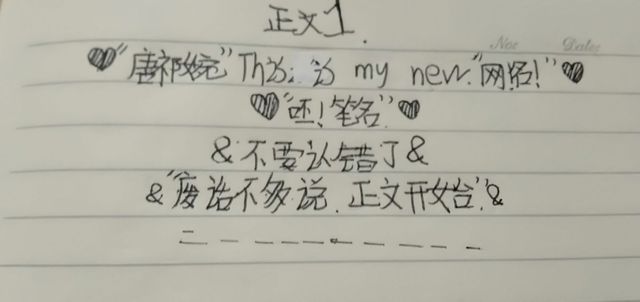 正文1.
"唐祁婉"This is my new."网名!"
"呸!笔名"
&不要认错了&
&"废话不多说.正文开始"&
No: Date: